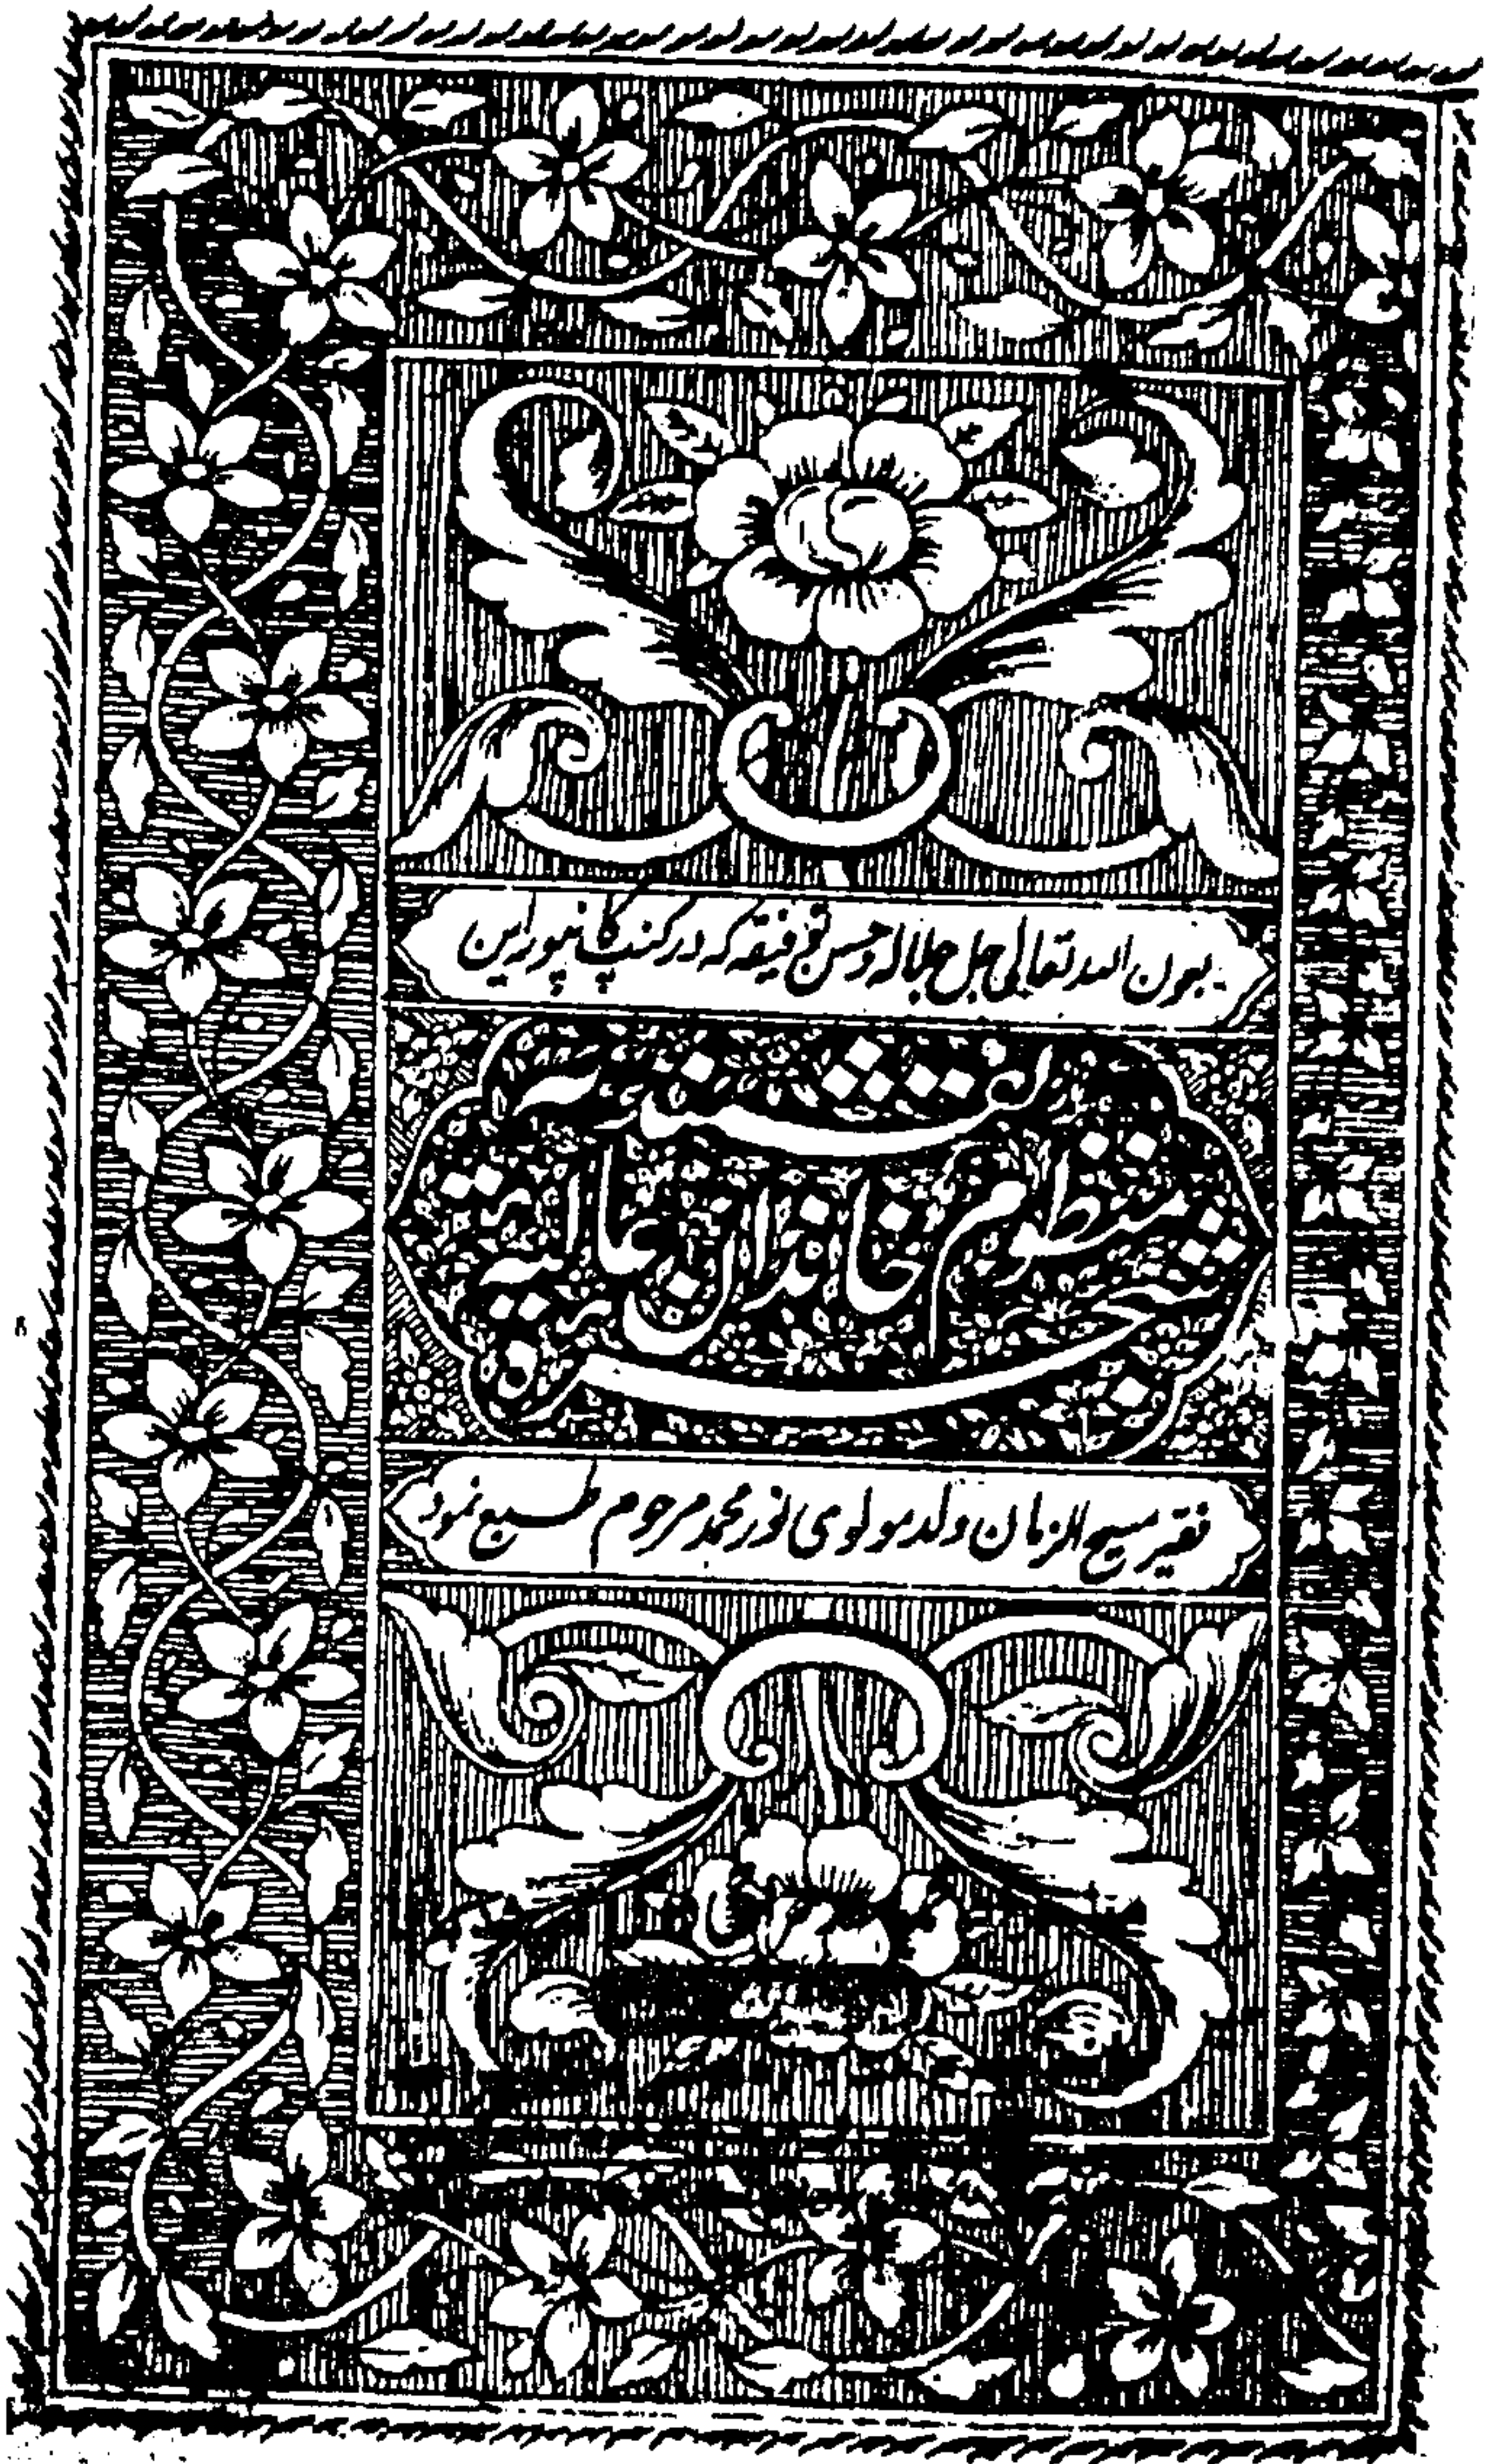 بعون اللہ تعالی جل جلالہ وحسن توفیقہ کہ در کنپ کانپور این
منظوم خاندان عالیہ
فقیر مسیح الزمان ولد مولوی نور محمد مرحوم طبع نمود